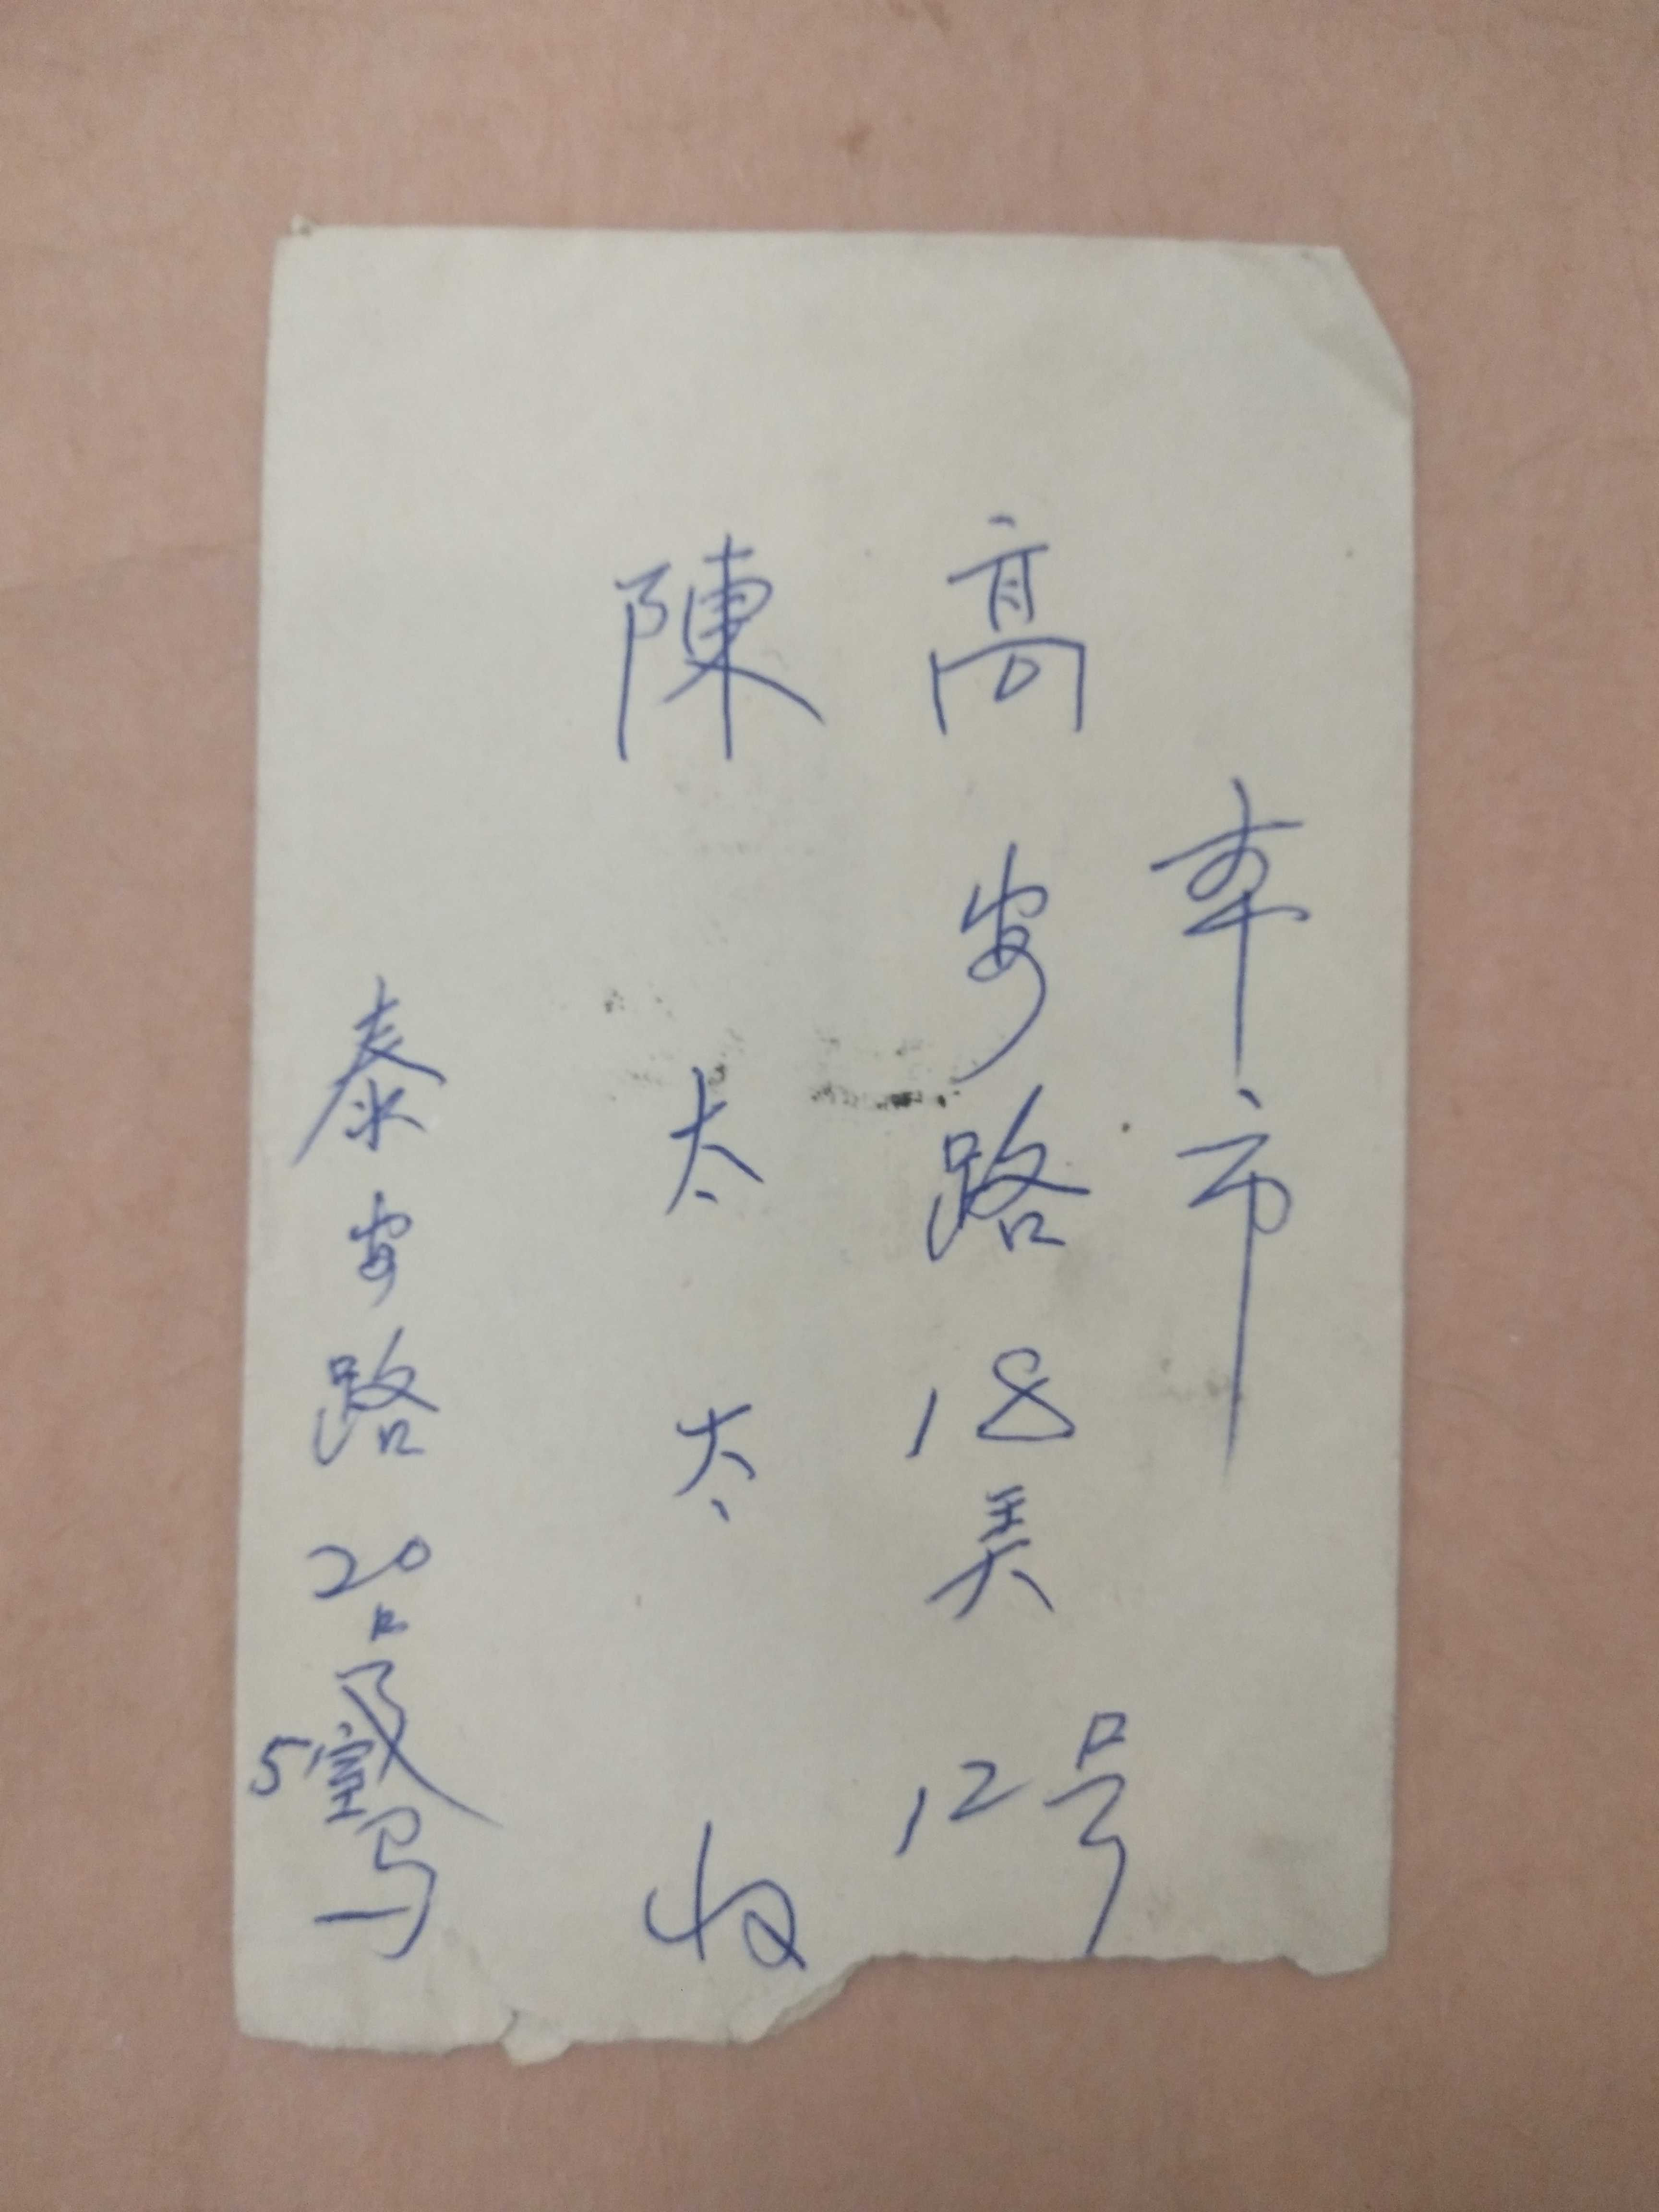 本市
高安路18弄12号
陳太太收
泰安路20号
5室马